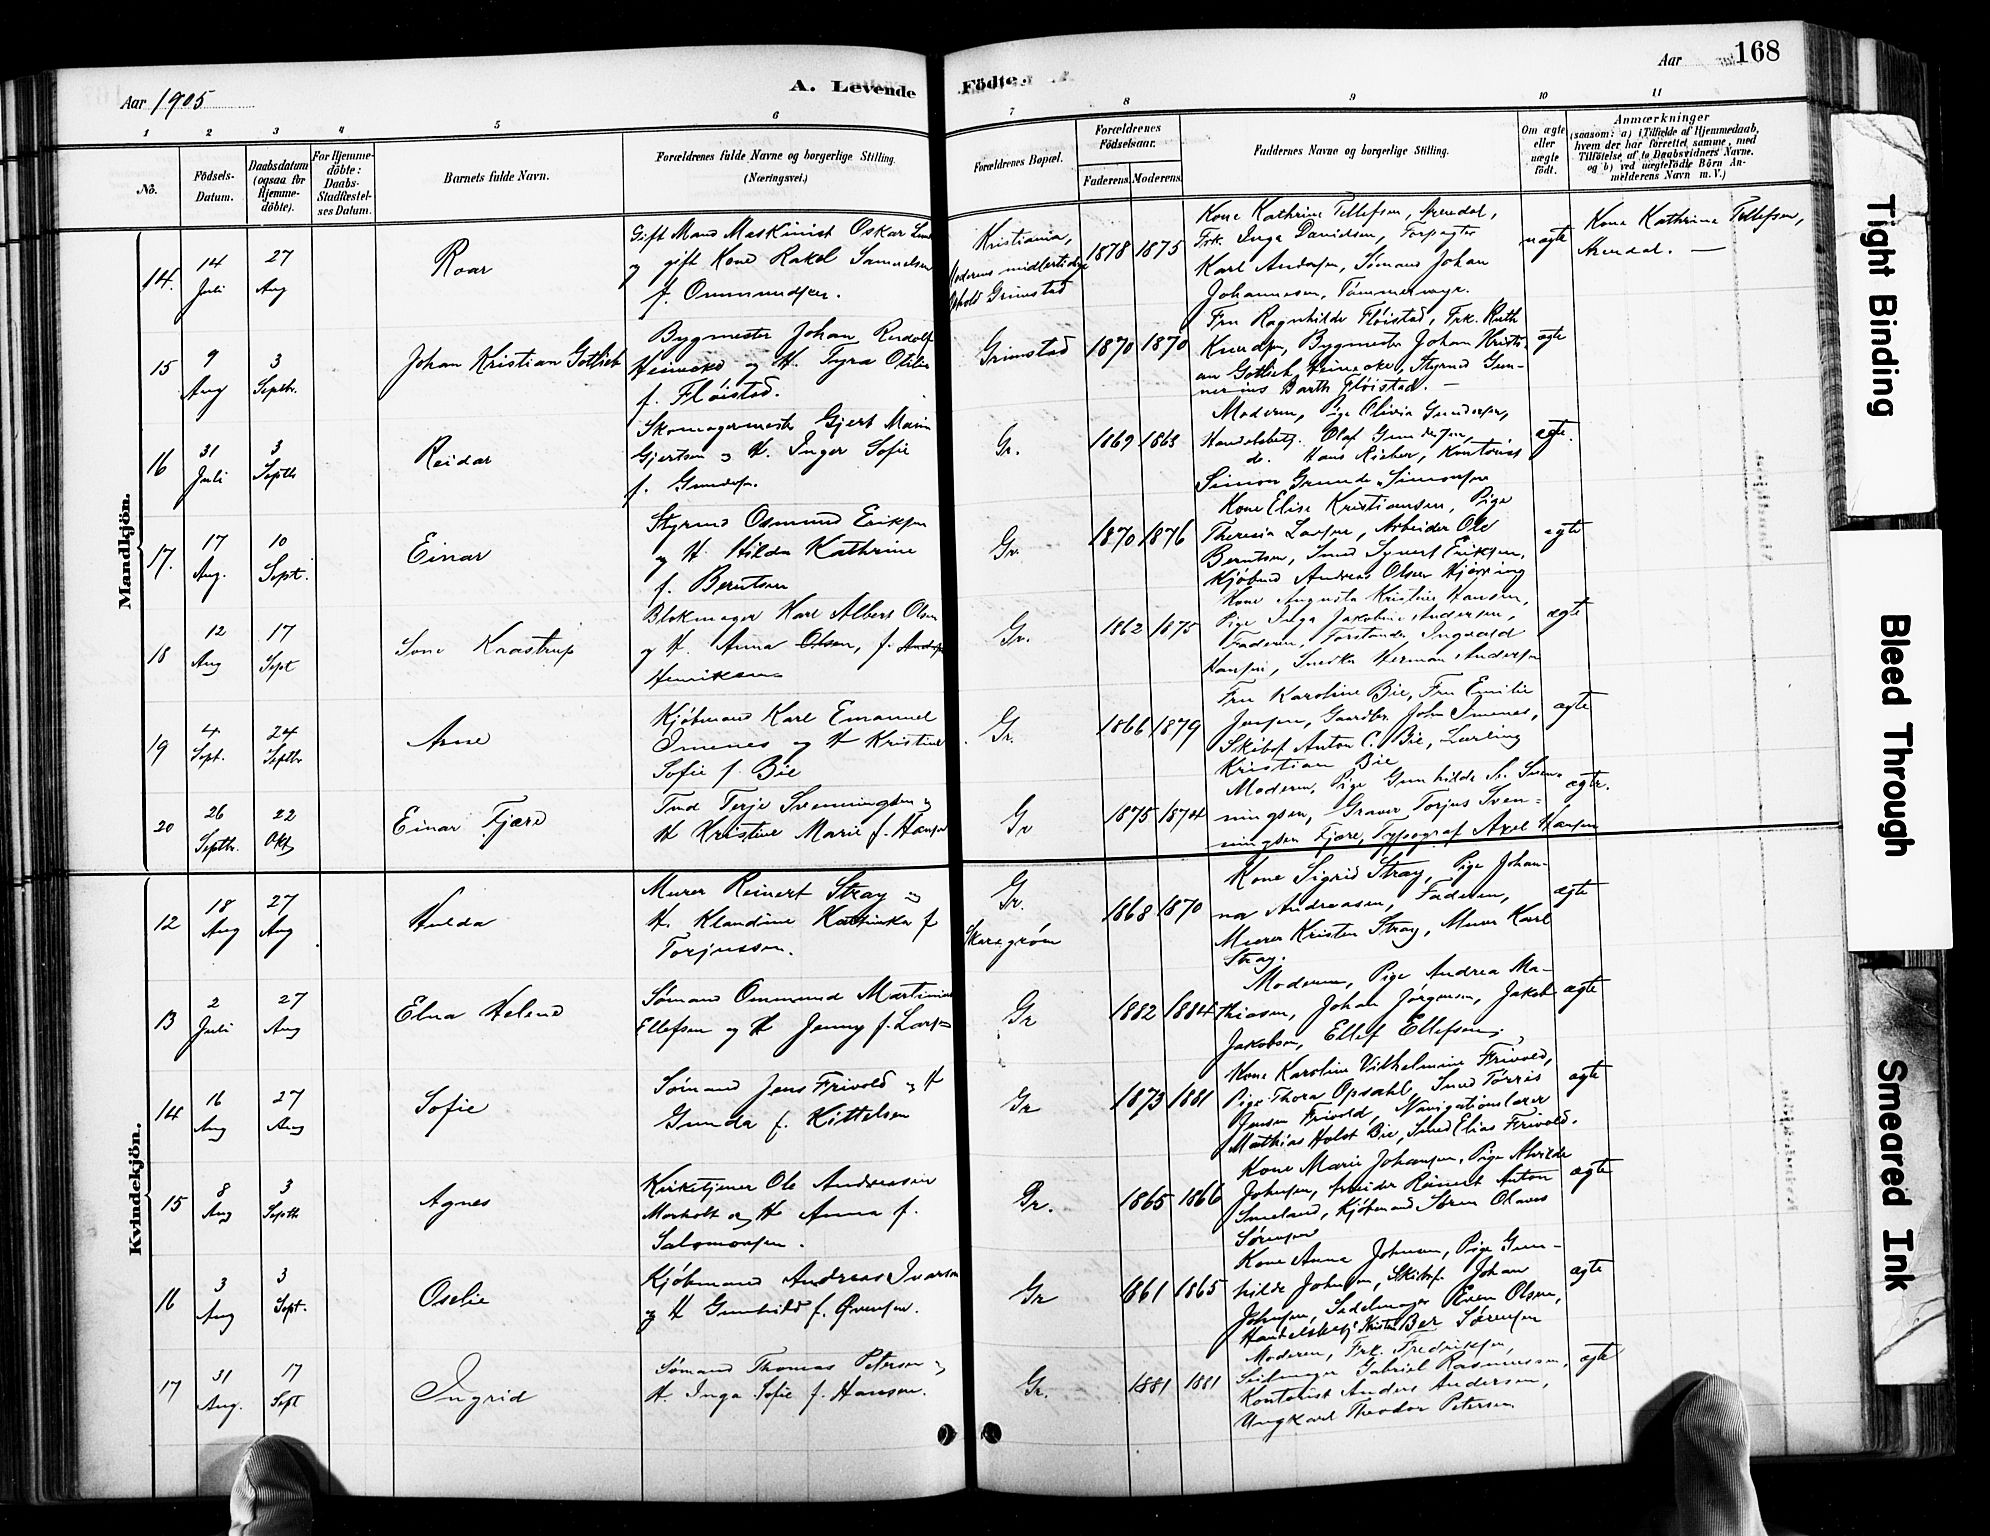 Aar 1905
A. Levende
Födte.
Aar
168
1
2
3
4
5
6
7
8
9
10
11
No.
Födsels-
Datum.
Daabsdatum
(ogsaa for
Hjemme-
döbte).
For Hjemme-
döbte:
Daabs-
Stadfæstel-
ses Datum.
Barnets fulde Navn.
Forældrenes fulde Navne og borgerlige Stilling.
(Næringsvei.)
Forældrenes Bopæl.
Forældrenes
Födselsaar.
Faderens.
Moderens.
Faddernes Navne og borgerlige Stilling.
Om ægte
eller
uægte
födt.
Anmærkninger
(saasom: a) i Tilfælde af Hjemmedaab,
hvem der har forrettet samme, med
Tilföielse af to Daabsvidners Navne.
og b) ved uægtefödte Börn An-
melderens Navn m. V.)
Mandkjön.
14.
14
Juli
27
Aug
Roar
Gift Mand Maskinist Oskar
og gift Kone Rakel Samuelsen
f. Ommundsen.
Kristiania,
Moderens midlertidige
Ophold Grimstad
1878
1875
Kone Kathrine Tellefsen, Arendal,
Frk. Inga Davidsen, Forpagter
Karl Andersen, Sømand Johan
Johannesen, Tømmermgr.
uægte
Kone Kathrine Tellefsen,
Arendal. —
15
9
Aug
3
Septbr.
Johan Kristian Gotlieb
Bygmester Johan Rudolf
Heinecke og H. Tyra Otilie
f. Fløistad.
Grimstad
1870
1870
Fru Ragnhilde Fløistad, Frk. Ruth
Knudsen, Bygmester Johan Kristi-
an Gotlieb Heinecke, Styrmd Gun-
nerius Barth Fløistad. —
ægte
16
31
Juli
3
Septbr
Reidar
Skomagermester Gjert Marin
Gjertsen og H. Inger Sofie
f. Gundersen.
Gr.
1869
1863
Moderen, Pige Olivia Gundersen,
Handelsbetj. Olaf Gundersen,
do. Hans Rieber, Kontorist
Simon Simonsen
ægte.
17.
17
Aug.
10
Sept.
Einar
Styrmd Osmund Eriksen
og H. Hilda Kathrine
f. Berntsen
Gr.
1870
1876
Kone Elise Kristiansen, Pige
Theresia Larsen, Arbeider Ole
Berntsen, Smed Syvert Eriksen,
Kjøbmd Andreas Olsen Hjørring
ægte
18
12
Aug
17
Sept
Kraastrup
Blokmager Karl Albert Olsen
og H. Anna Olsen, f.
Henriksen
Gr.
1862
1875
Kone Augusta Kristine Hansen,
Pige Inga Jakobine Andersen,
Faderen, Forstander Ingvald
Hansen, Snedker Herman Andersen
ægte
19
4
Sept.
24
Septbr
Arne
Kjøbmand Karl Emanuel
Imenes og H Kristine
Sofie f. Bie
Gr.
1866
1879
Fru Karoline Bie, Fru Emilie
Jensen, Gaardbr. John Imenes,
Skibsf. Anton C. Bie, Lærling
Kristian Bie
ægte
20
26
Septbr.
22
Oktr
Einar Fjære
Terje Svenningsen og
H Kristine Marie f. Hansen
Gr
1875
1874
Moderen, Pige Gunhilde S. Sven-
ningsen, Graver Torjus Sven-
ningsen Fjære, Typograf Axel Hansen
ægte.
Kvindekjön.
12
18
Aug
27
Aug
Hulda
Murer Reinert Stray og
H. Klandine Kathinka f
Torjussen.
Gr.
1868
1870
Kone Sigrid Stray, Pige Johan-
na Andreasen, Faderen,
Murer Kristen Stray, Murer Karl
Stray.
ægte
13
2
Juli
27
Aug
Elna Helene
Sømand Ommund Martinius
Ellefsen og H Jenny f. Larsen
Gr
1882
1884
Moderen, Pige Andrea Ma-
thiasen, Johan Jørgensen, Jakob
Jakobsen, Ellef Ellefsen.
ægte
14
16
Aug
27
Aug
Sofie
Sømand Jens Frivold og H
Gunda f. Kittelsen
Gr
1873
1881
Kone Karoline Vilhelmine Frivold,
Pige Thora Opsahl, Smed Tørris
Jensen Frivold, Navigationslærer
Mathias Holst Bie, Smed Elias Frivold.
ægte
15
8
Aug
3
Septb
Agnes
Kirketjener Ole Andreasen
Morholt og H Anna f.
Salomonsen.
Gr.
1865
1866
Kone Marie Johansen, Pige Alvilde
Johnsen, Arbeider Reinert Anton
Smeland, Kjøbmand Søren Olaves
Sørensen
ægte
16
3
Aug
3
Sept.
Oselie
Kjøbmand Andreas Ivarsen
og H Gunhild f. Øvensen.
Gr
1861
1865
Kone Anna Johnsen, Pige Gun-
hilde Johnsen, Skibsf. Johan
Johnsen, Sadelmager Even Olsen,
Handelsbetj. Ber Sørensen
ægte
17
31
Aug.
17
Sept
Ingrid
Sømand Thomas Petersen og
H. Inga Sofie f. Hansen.
Gr.
1881
1881
Moderen, Frk. Fredriksen,
Seilmager Gabriel Rasmussen,
Kontorist Anders Andersen,
Ungkarl Theodor Petersen
ægte
Tight Binding
Bleed Through
Smeared Ink